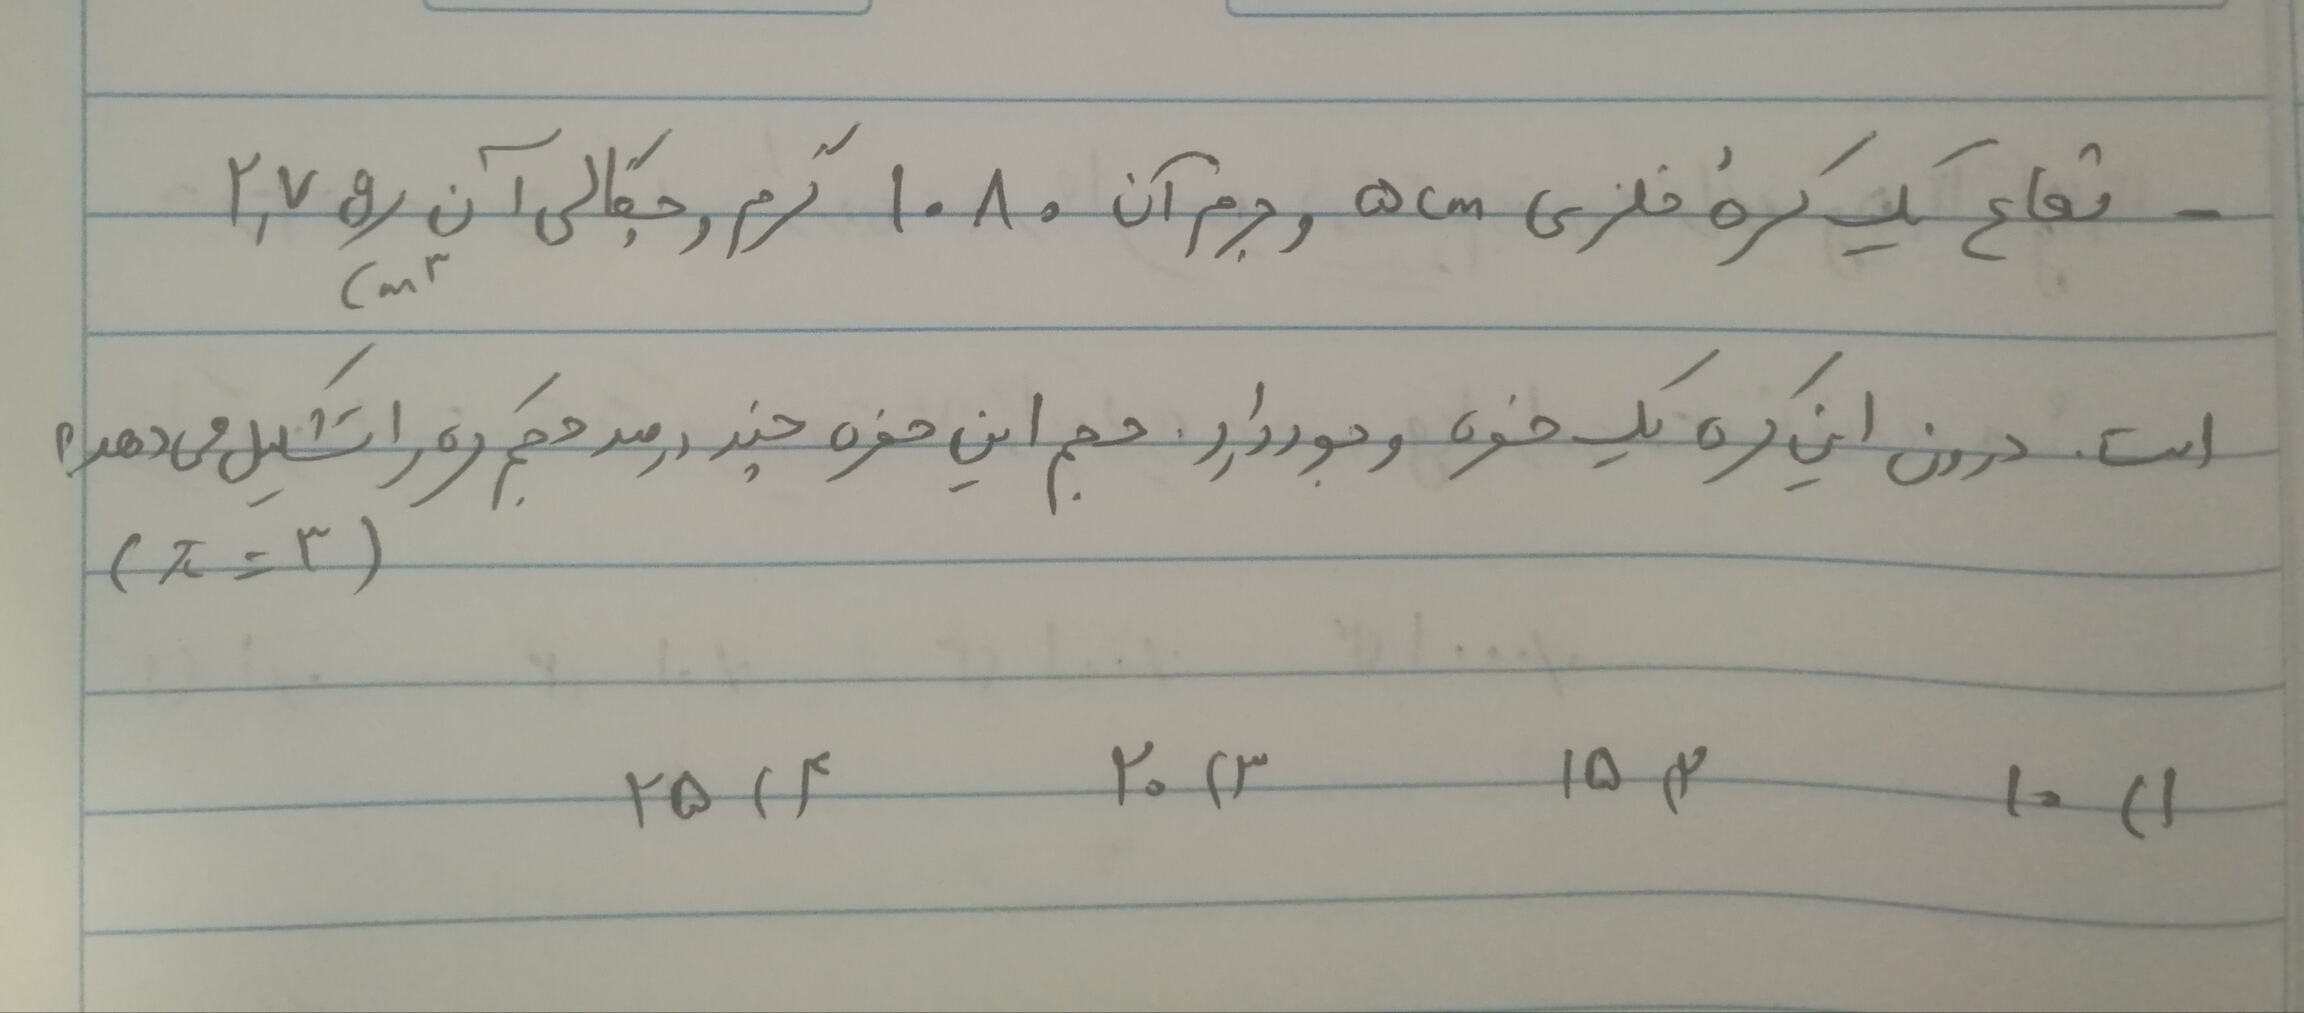 - شعاع یک کرهٔ فلزی ۵cm و جرم آن ۱۰۸۰ گرم و چگالی آن ۲٫۷ g/cm³
است. درون این کره یک حفره وجود دارد. حجم این حفره چند درصد حجم کره را تشکیل می‌دهد؟
(π = ۳)
۱) ۱۰ ۲) ۱۵ ۳) ۲۰ ۴) ۲۵